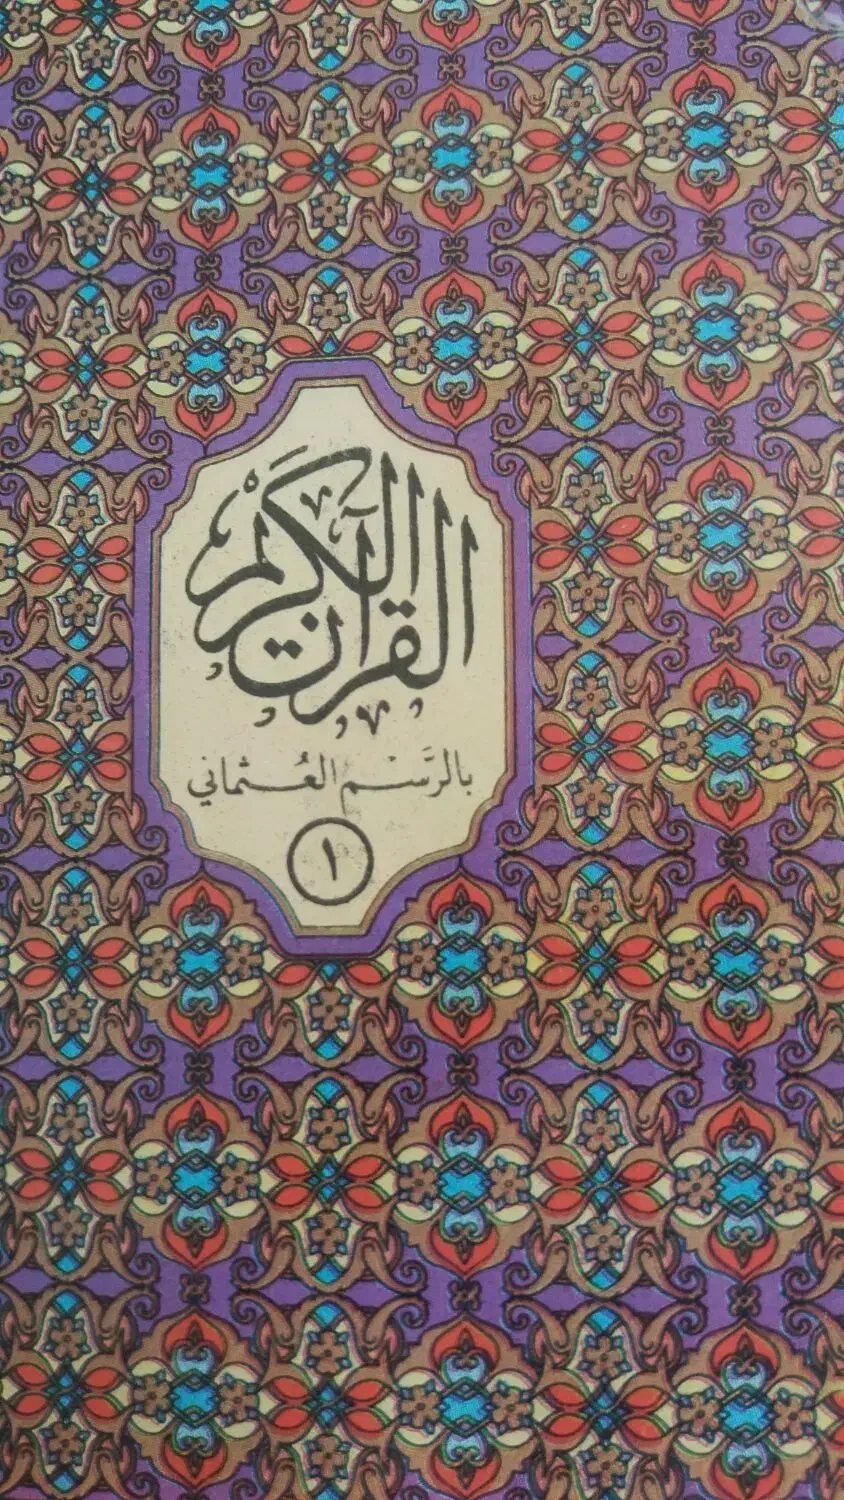 القرآن الكَرِيْم
بالرَّسْم العُثماني
١